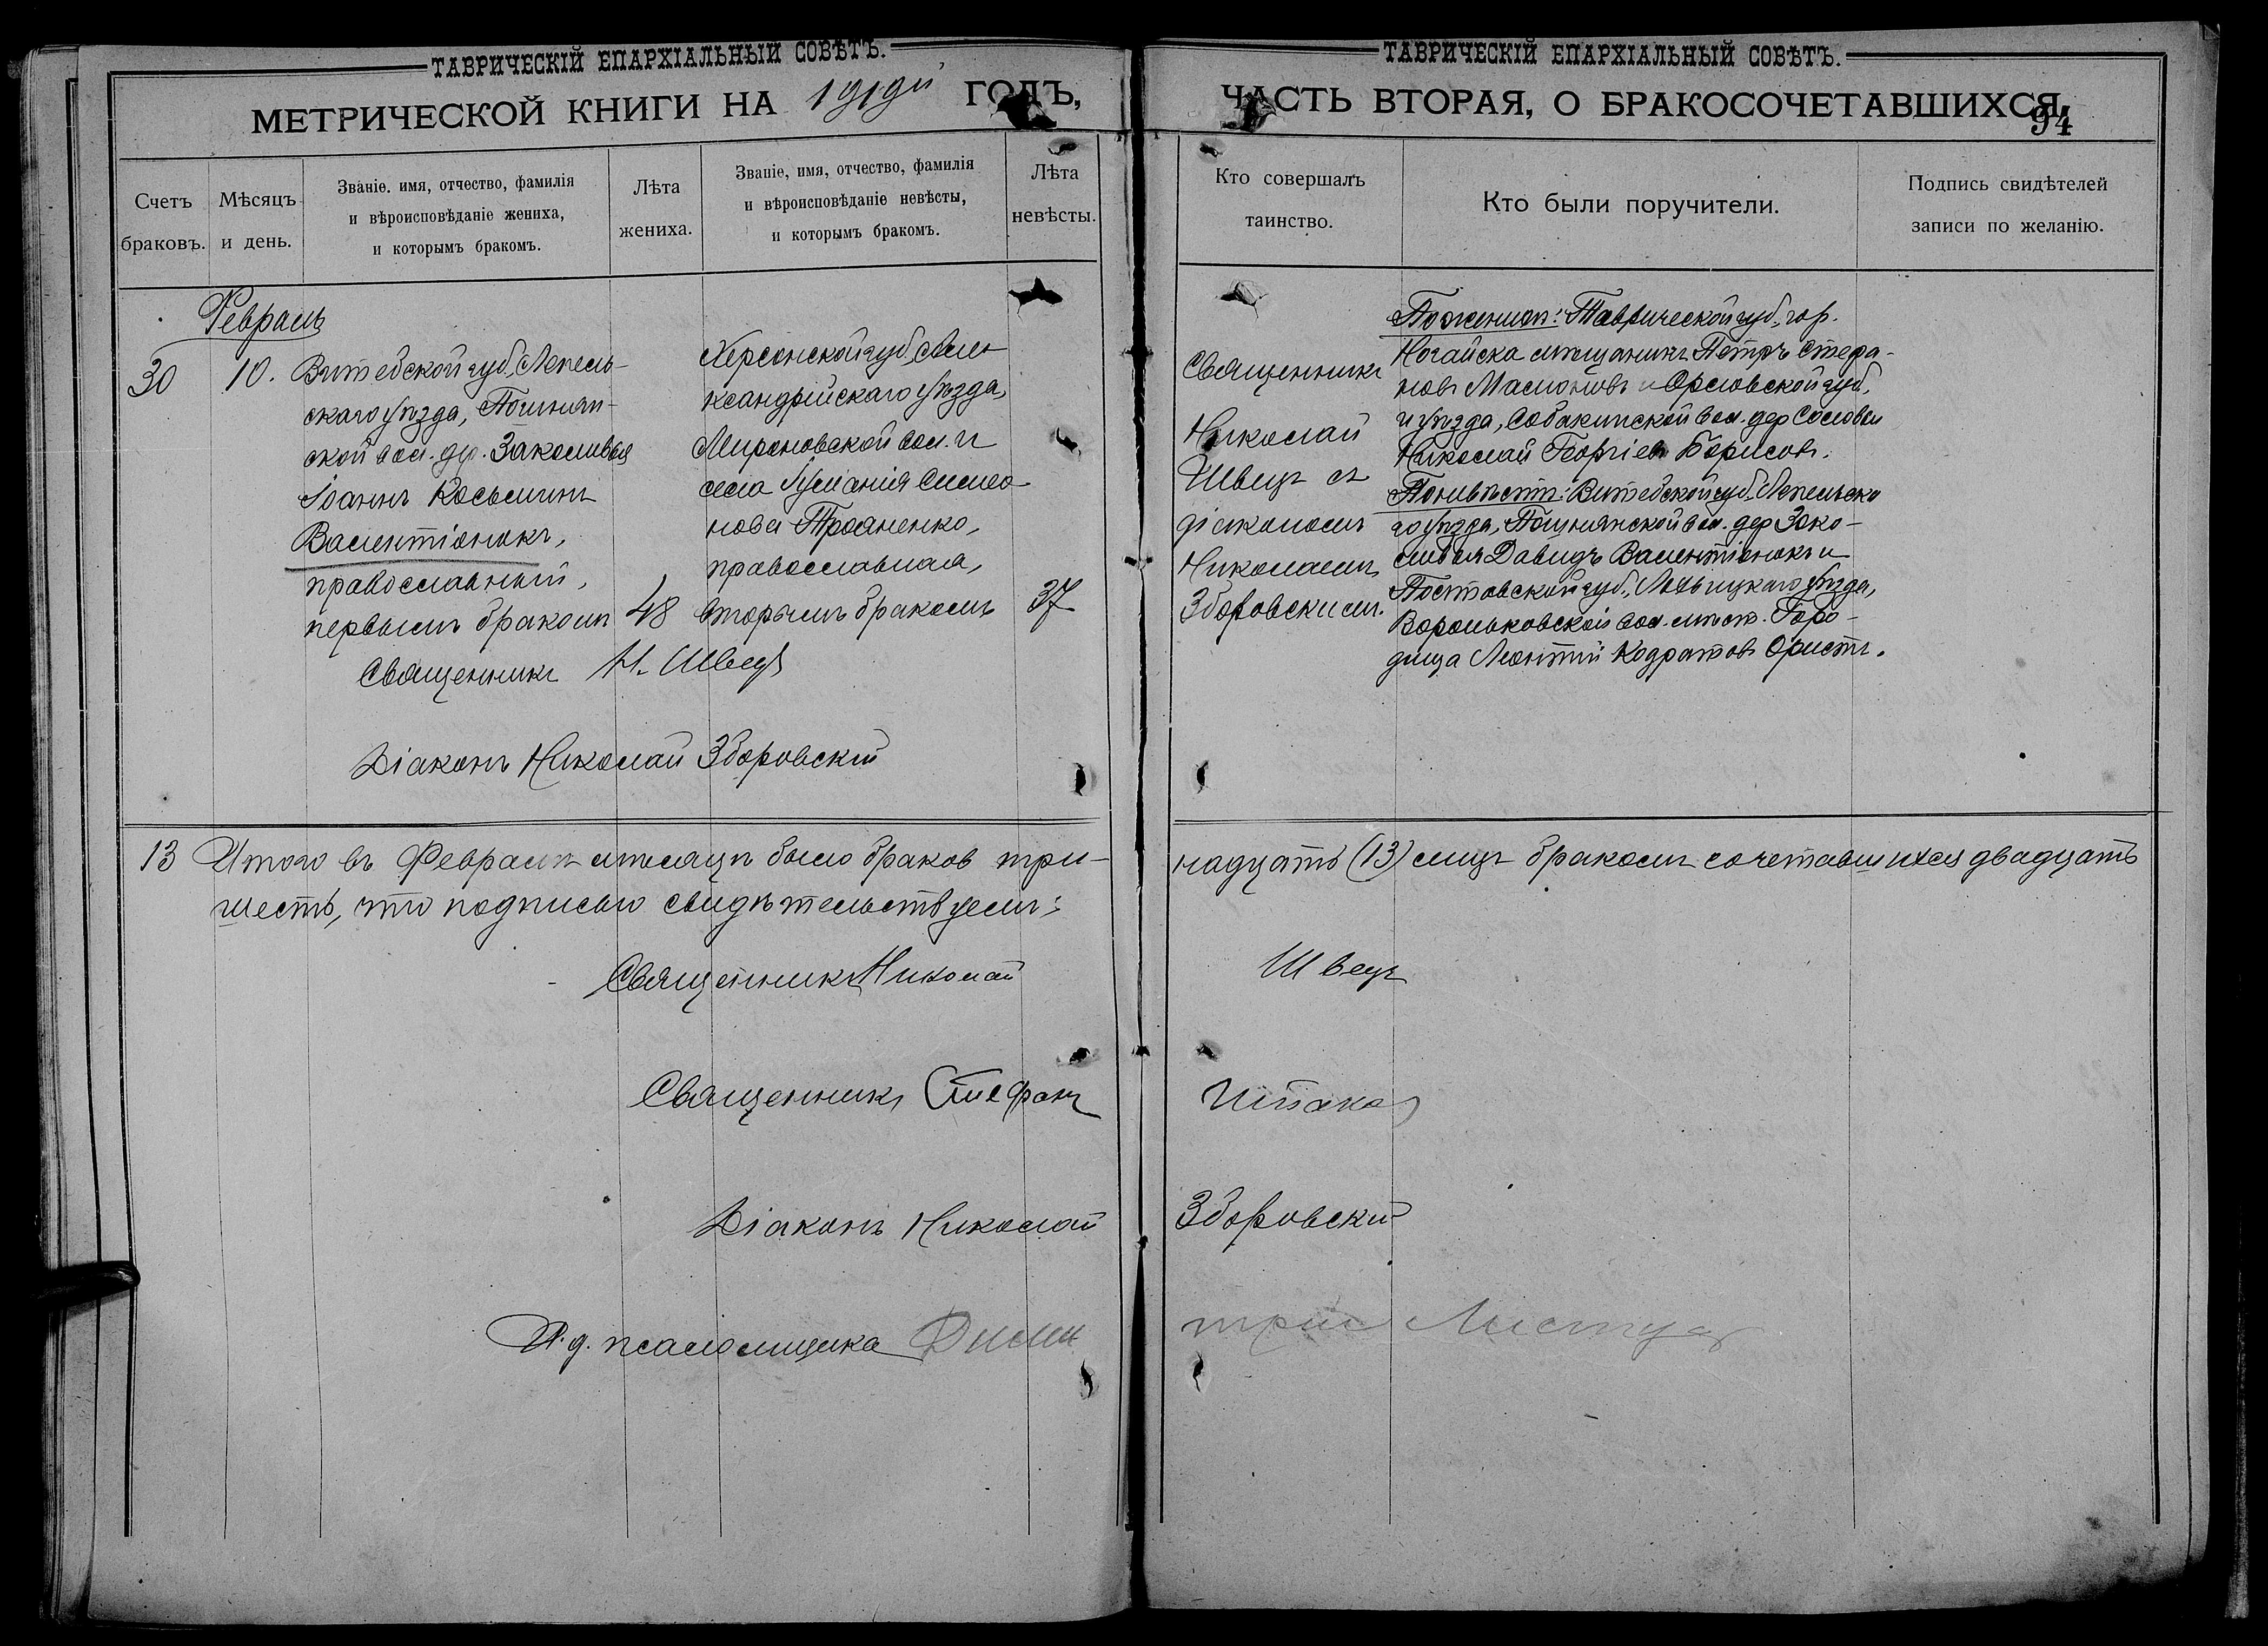 ТАВРИЧЕСКІЙ ЕПАРХІАЛЬНЫЙ СОВѢТЪ.
МЕТРИЧЕСКОЙ КНИГИ НА 1919й ГОДЪ,
Счетъ браковъ.
Мѣсяцъ и день.
Званіе, имя, отчество, фамилія
и вѣроисповѣданіе жениха,
и которымъ бракомъ.
Лѣта жениха.
Званіе, имя, отчество, фамилія
и вѣроисповѣданіе невѣсты,
и которымъ бракомъ.
Лѣта невѣсты.
Февраль
30
10.
Витебской губ. Лепель-
скаго уѣзда,
ской вол. дер. Заколивья
Іоаннъ Косьминъ
Валентіонокъ,
православный,
первымъ бракомъ
48
Херсонской губ. Алек
ксандрійскаго уѣзда,
Мироновской вол. и
села Симео-
нова Трояненко,
православная,
вторымъ бракомъ
37
Священникъ Н. Швецъ
Діаконъ Николай Зборовскій
13 Итого въ Февралѣ мѣсяцѣ было браков три-
шесть, что подписью свидѣтельствуемъ:
Священникъ Николай
Священникъ Стефанъ
Діаконъ Николай
И.д. псаломщика Дими
ТАВРИЧЕСКІЙ ЕПАРХІАЛЬНЫЙ СОВѢТЪ.
ЧАСТЬ ВТОРАЯ, О БРАКОСОЧЕТАВШИХСЯ,
94
Кто совершалъ таинство.
Кто были поручители.
Подпись свидѣтелей
записи по желанію.
Священникъ
Николай
Швецъ съ
діакономъ
Николаемъ
Зборовскимъ.
По женихѣ: Таврической губ., гор.
Ногайска мѣщанинъ Петръ Стефа-
новъ и Орловской губ.
и уѣзда, Собакинской вол. дер
Николай Георгіевъ Борисовъ.
По невѣстѣ: Витебской губ. Лепельска
го уѣзда, вол. дер Зако-
ливья Давидъ Валентіонокъ и
губ., уѣзда,
Вороньковской вол. мѣст. Горо-
дища Леонтій Кодратовъ
надцать (13) лицъ бракомъ сочетавшихся двадцать
Швецъ
Зборовскій
трій